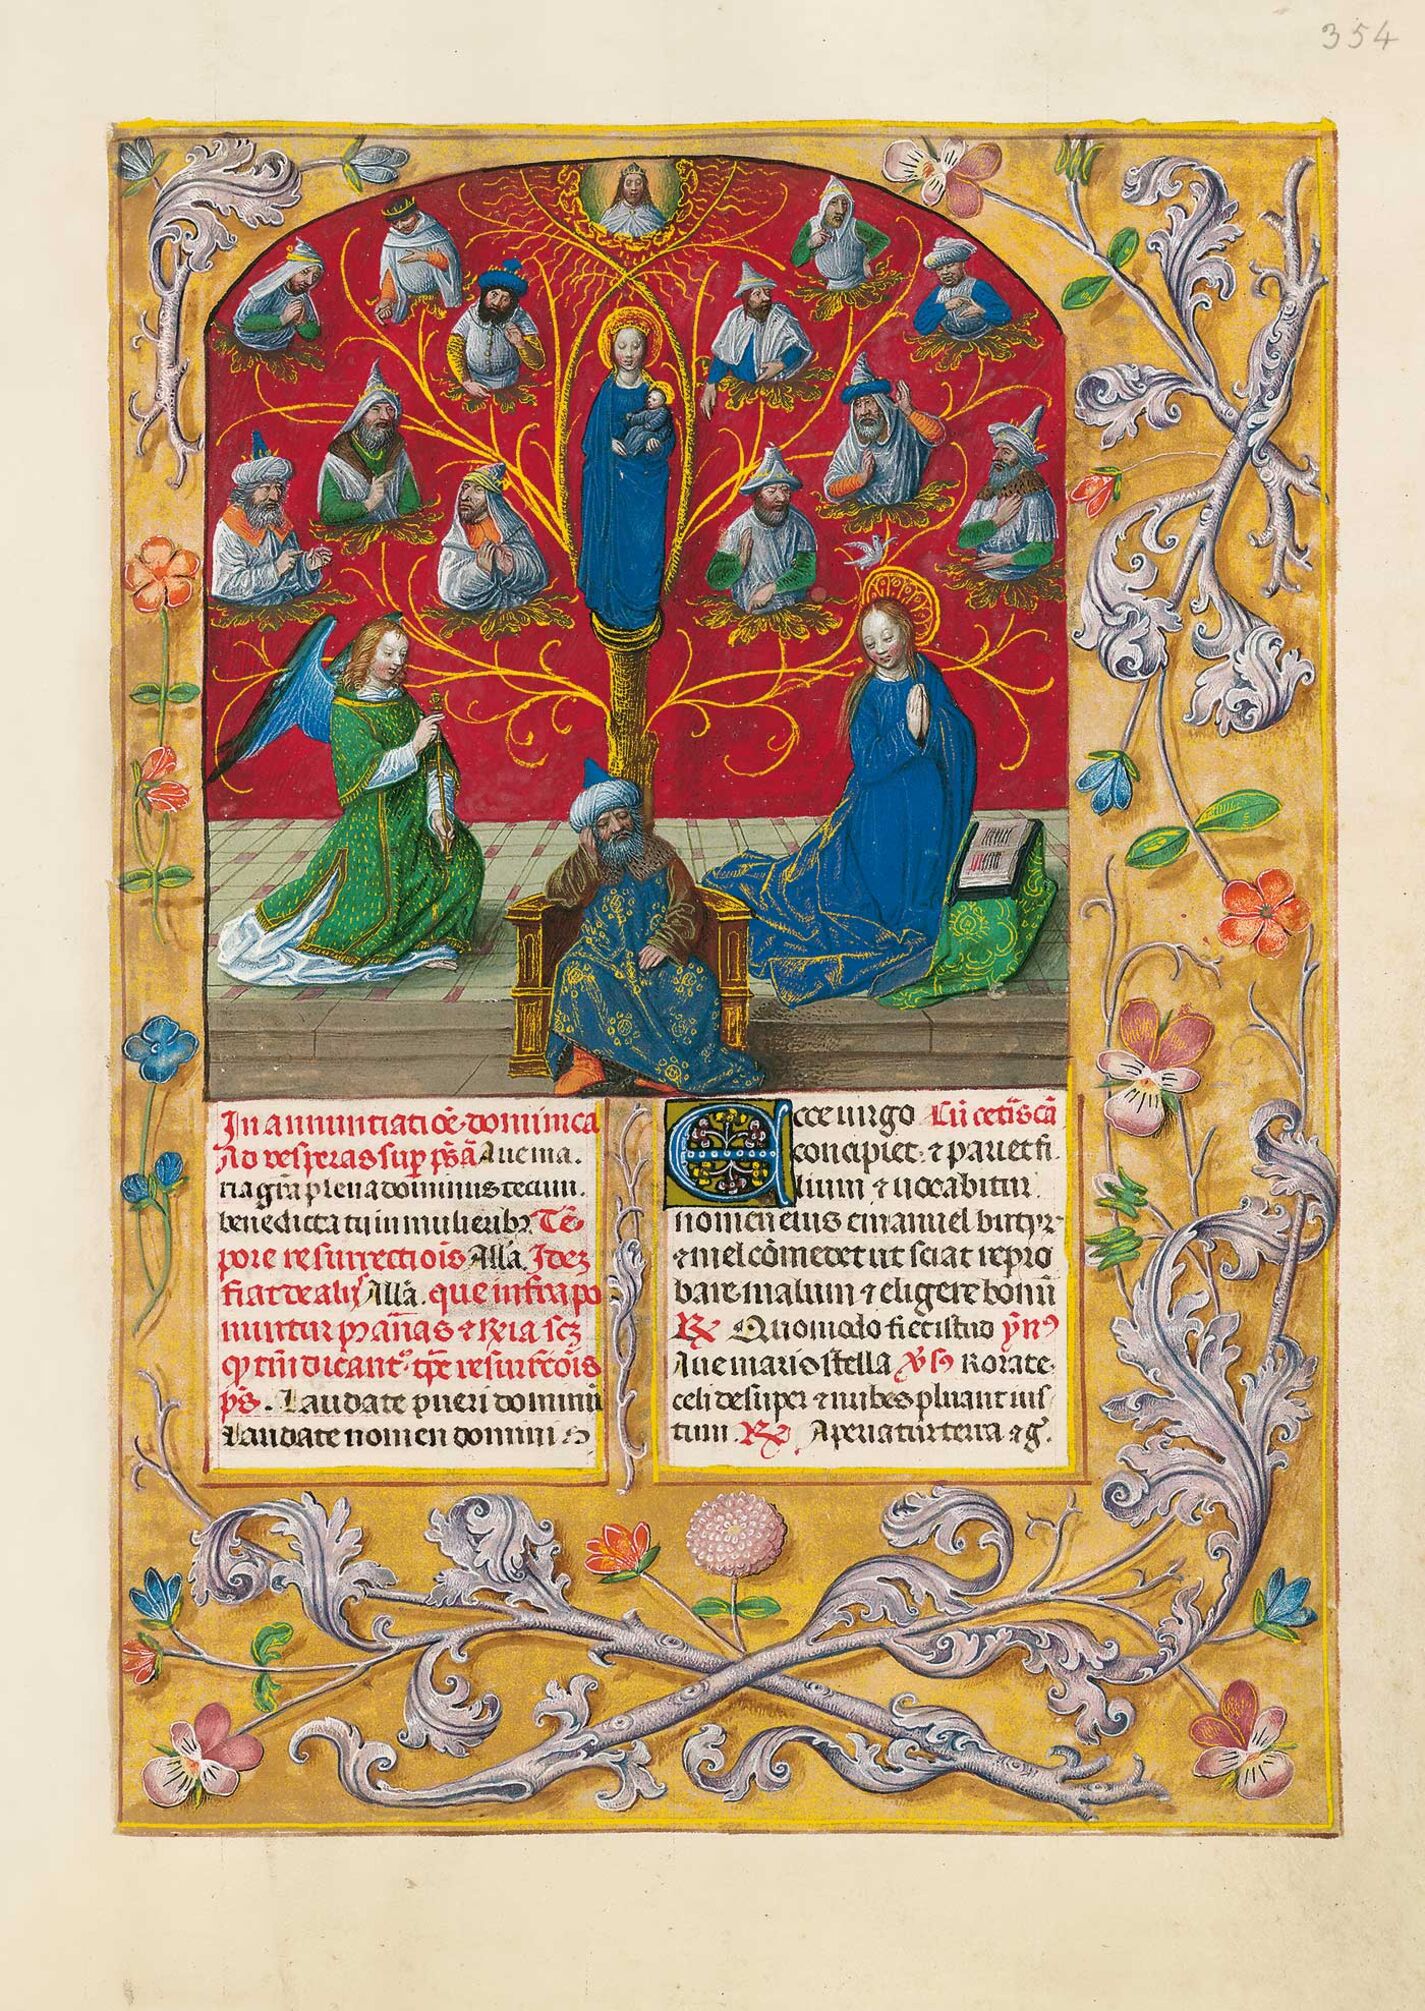 354
In annunciatiōe dominica
Ad vesperas sup̄ p̄sā Aue ma.
ria gr̄a plena dominus tecum.
benedicta tu in mulieribꝰ Tē
pore resurrectiōis All̄a. Idez
fiat de alijs All̄a. que infra po
nuntur p̄ an̄as ⁊ R̄ia scz
laudate pueri dominū
Laudate nomen domini
Ecce uirgo
concipiet ⁊ pariet fi
lium ⁊ uocabitur
nomen eius emanuel butyꝝ
⁊ mel cōmedet ut sciat repro
bare malum ⁊ eligere bonū
R̄ Quomodo fiet istud ẏn9
Aue maris stella Rorate
celi desuper ⁊ nubes pluant ius
tum. R̄ Aperiatur terra ⁊ g̃.